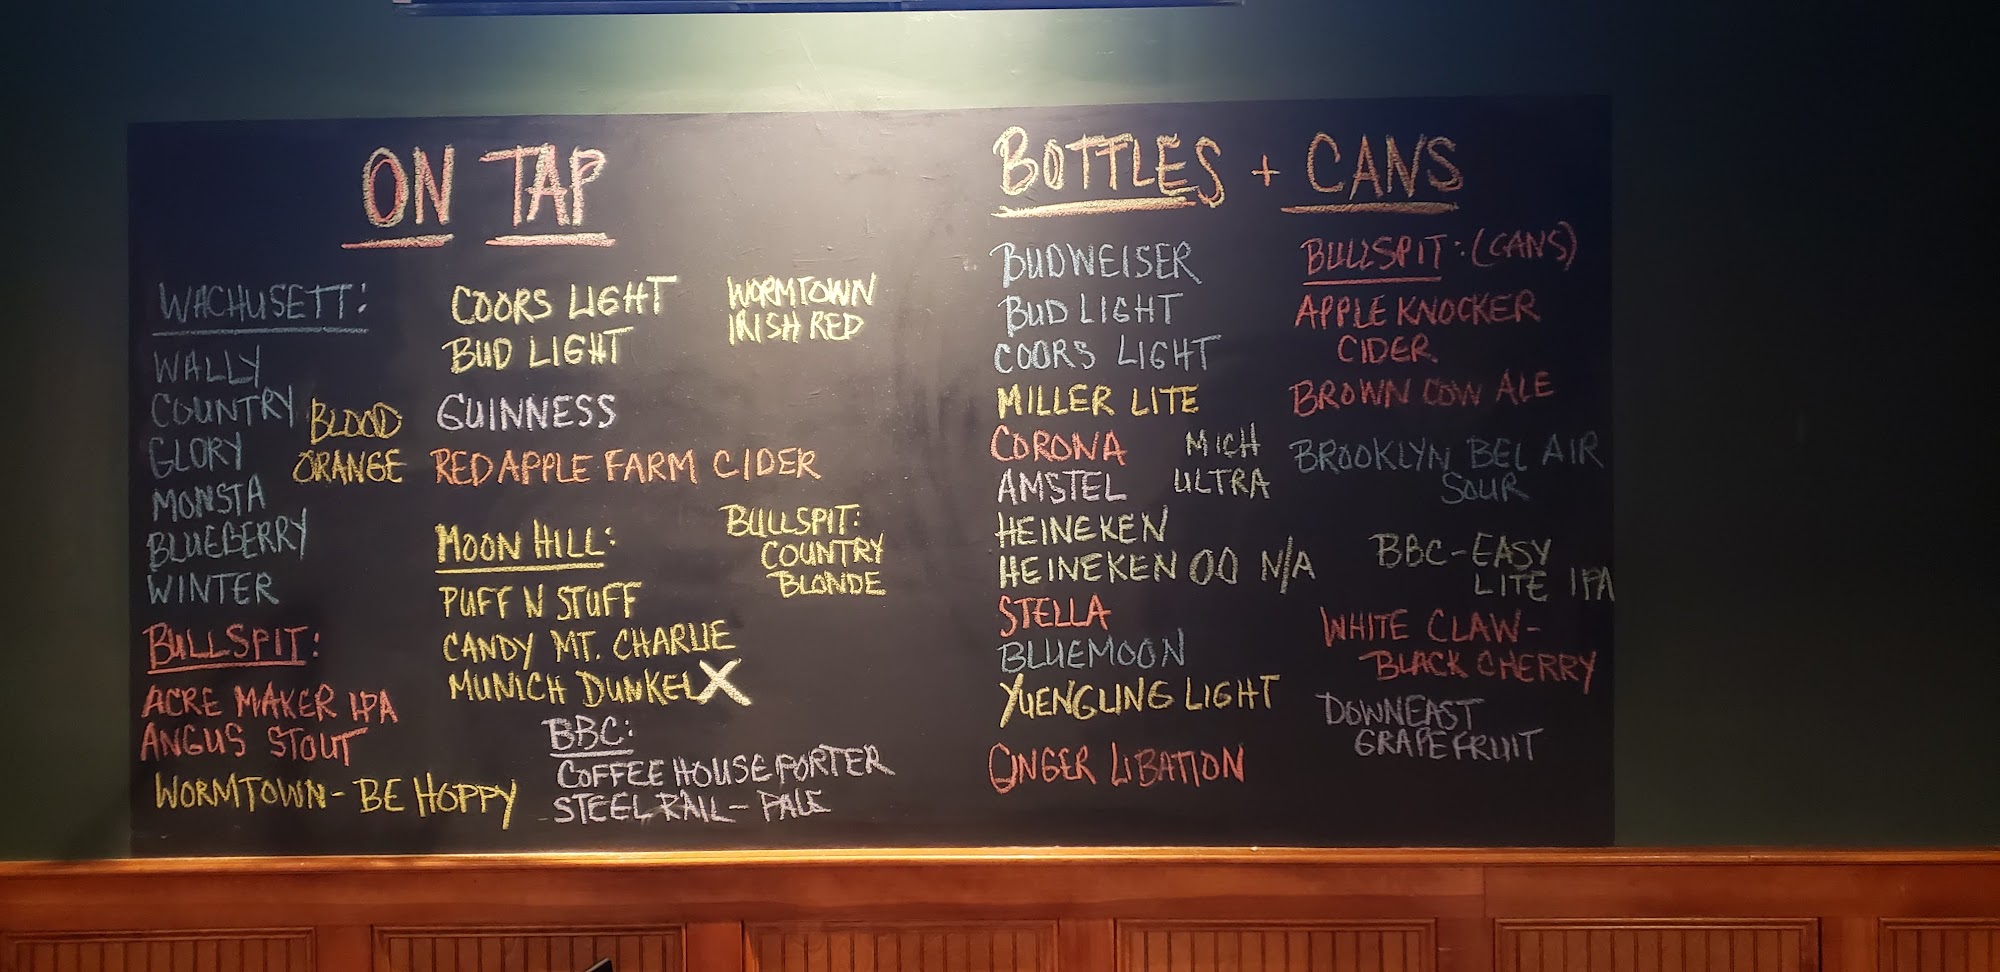 ON TAP
WACHUSETT:
WALLY
COUNTRY
GLORY
MONSTA
BLUEBERRY
WINTER
BLOOD
ORANGE
BULLSPIT:
ACRE MAKER IPA
ANGUS STOUT
WORMTOWN - BE HOPPY
COORS LIGHT
BUD LIGHT
GUINNESS
RED APPLE FARM CIDER
MOON HILL:
PUFF N STUFF
CANDY MT. CHARLIE
MUNICH DUNKEL X
BBC:
COFFEE HOUSE PORTER
STEEL RAIL - PALE
WORMTOWN
IRISH RED
BULLSPIT:
COUNTRY
BLONDE
BOTTLES + CANS
BUDWEISER
BUD LIGHT
COORS LIGHT
MILLER LITE
CORONA
AMSTEL
MICH
ULTRA
HEINEKEN
HEINEKEN 00 N/A
STELLA
BLUEMOON
YUENGLING LIGHT
GINGER LIBATION
BULLSPIT: (CANS)
APPLE KNOCKER
CIDER.
BROWN COW ALE
BROOKLYN BEL AIR
SOUR
BBC - EASY
LITE IPA
WHITE CLAW -
BLACK CHERRY
DOWNEAST
GRAPEFRUIT